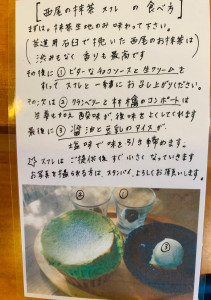 [西尾の抹茶スフレ の 食べ方]
まずは、抹茶生地のみ味わって下さい。
(茶道用石臼で挽いた西尾のお抹茶は)
渋みもなく 香りも最高です
その後に ①ビターなチョコソースと生クリームを
かけて スフレと一緒にお召し上がりください。
その次は ②クランベリーと林檎のコンポートは
生姜も加え 酸味が 後味をよくしてくれます
最後に ③醤油と豆乳のアイスが、
塩味で 味を引き締めます。
☆スフレは ご提供後すぐ小さくなっていきます
お写真を撮られる方は、スタンバイ、よろしくお願いします。
②
①
③